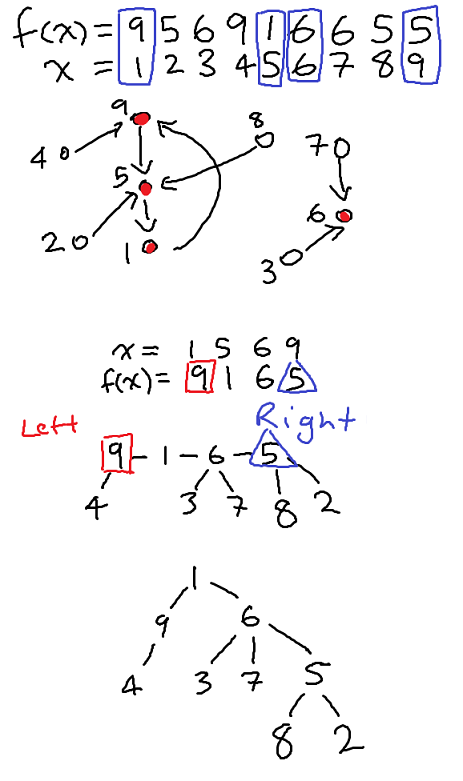 f(x) = 9 5 6 9 1 6 6 5 5
x = 1 2 3 4 5 6 7 8 9
9
8
4
7
5
6
2
1
3
x = 1 5 6 9
f(x) = 9 1 6 5
Left
Right
9 - 1 - 6 - 5
4 3 7 8 2
1
9 6
4 3 7 5
8 2